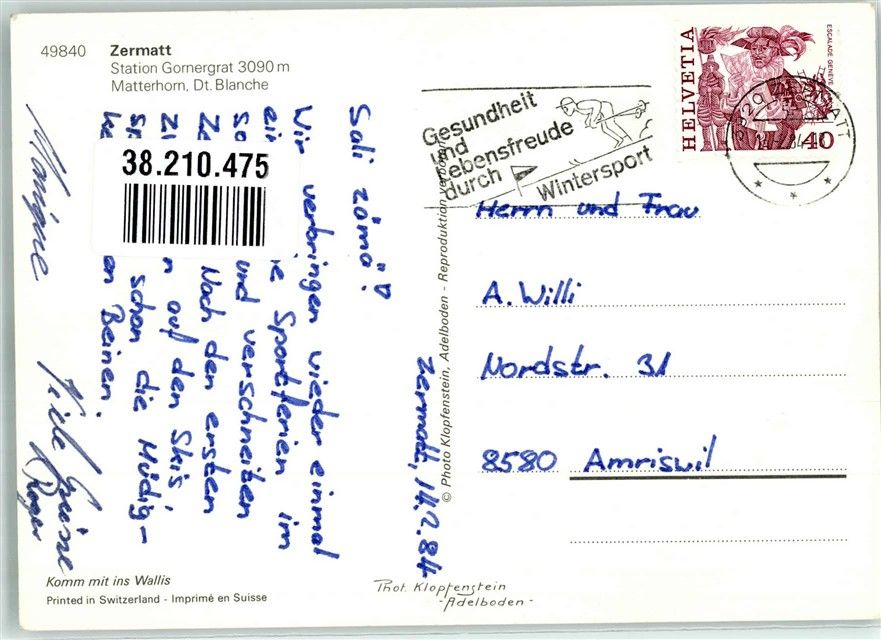 49840 Zermatt
Station Gornergrat 3090 m
Matterhorn, Dt. Blanche
HELVETIA
ESCALADE GENÈVE
40
ZERMATT
Gesundheit
und
Lebensfreude
durch
Wintersport
38.210.475
Zermatt, 14.2.84
Sali zämä!
Wir verbringen wieder einmal
ein e Sportferien im
so und verschneiten
Ze Nach den ersten
n auf den Skis,
schon die Müdig-
ke en Beinen.
Viele Grüsse
Roger
Monique
Herrn und Frau
A. Willi
Nordstr. 31
8580 Amriswil
© Photo Klopfenstein, Adelboden - Reproduktion verboten
Komm mit ins Wallis
Printed in Switzerland - Imprimé en Suisse
Phot. Klopfenstein
- Adelboden -